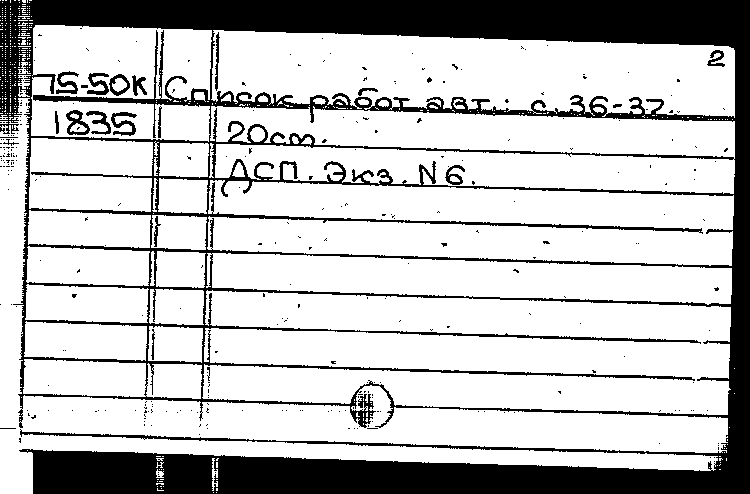 2
75-50К Список работ авт.: с. 36-37.
1835 20см.
ДСП. Экз. N6.